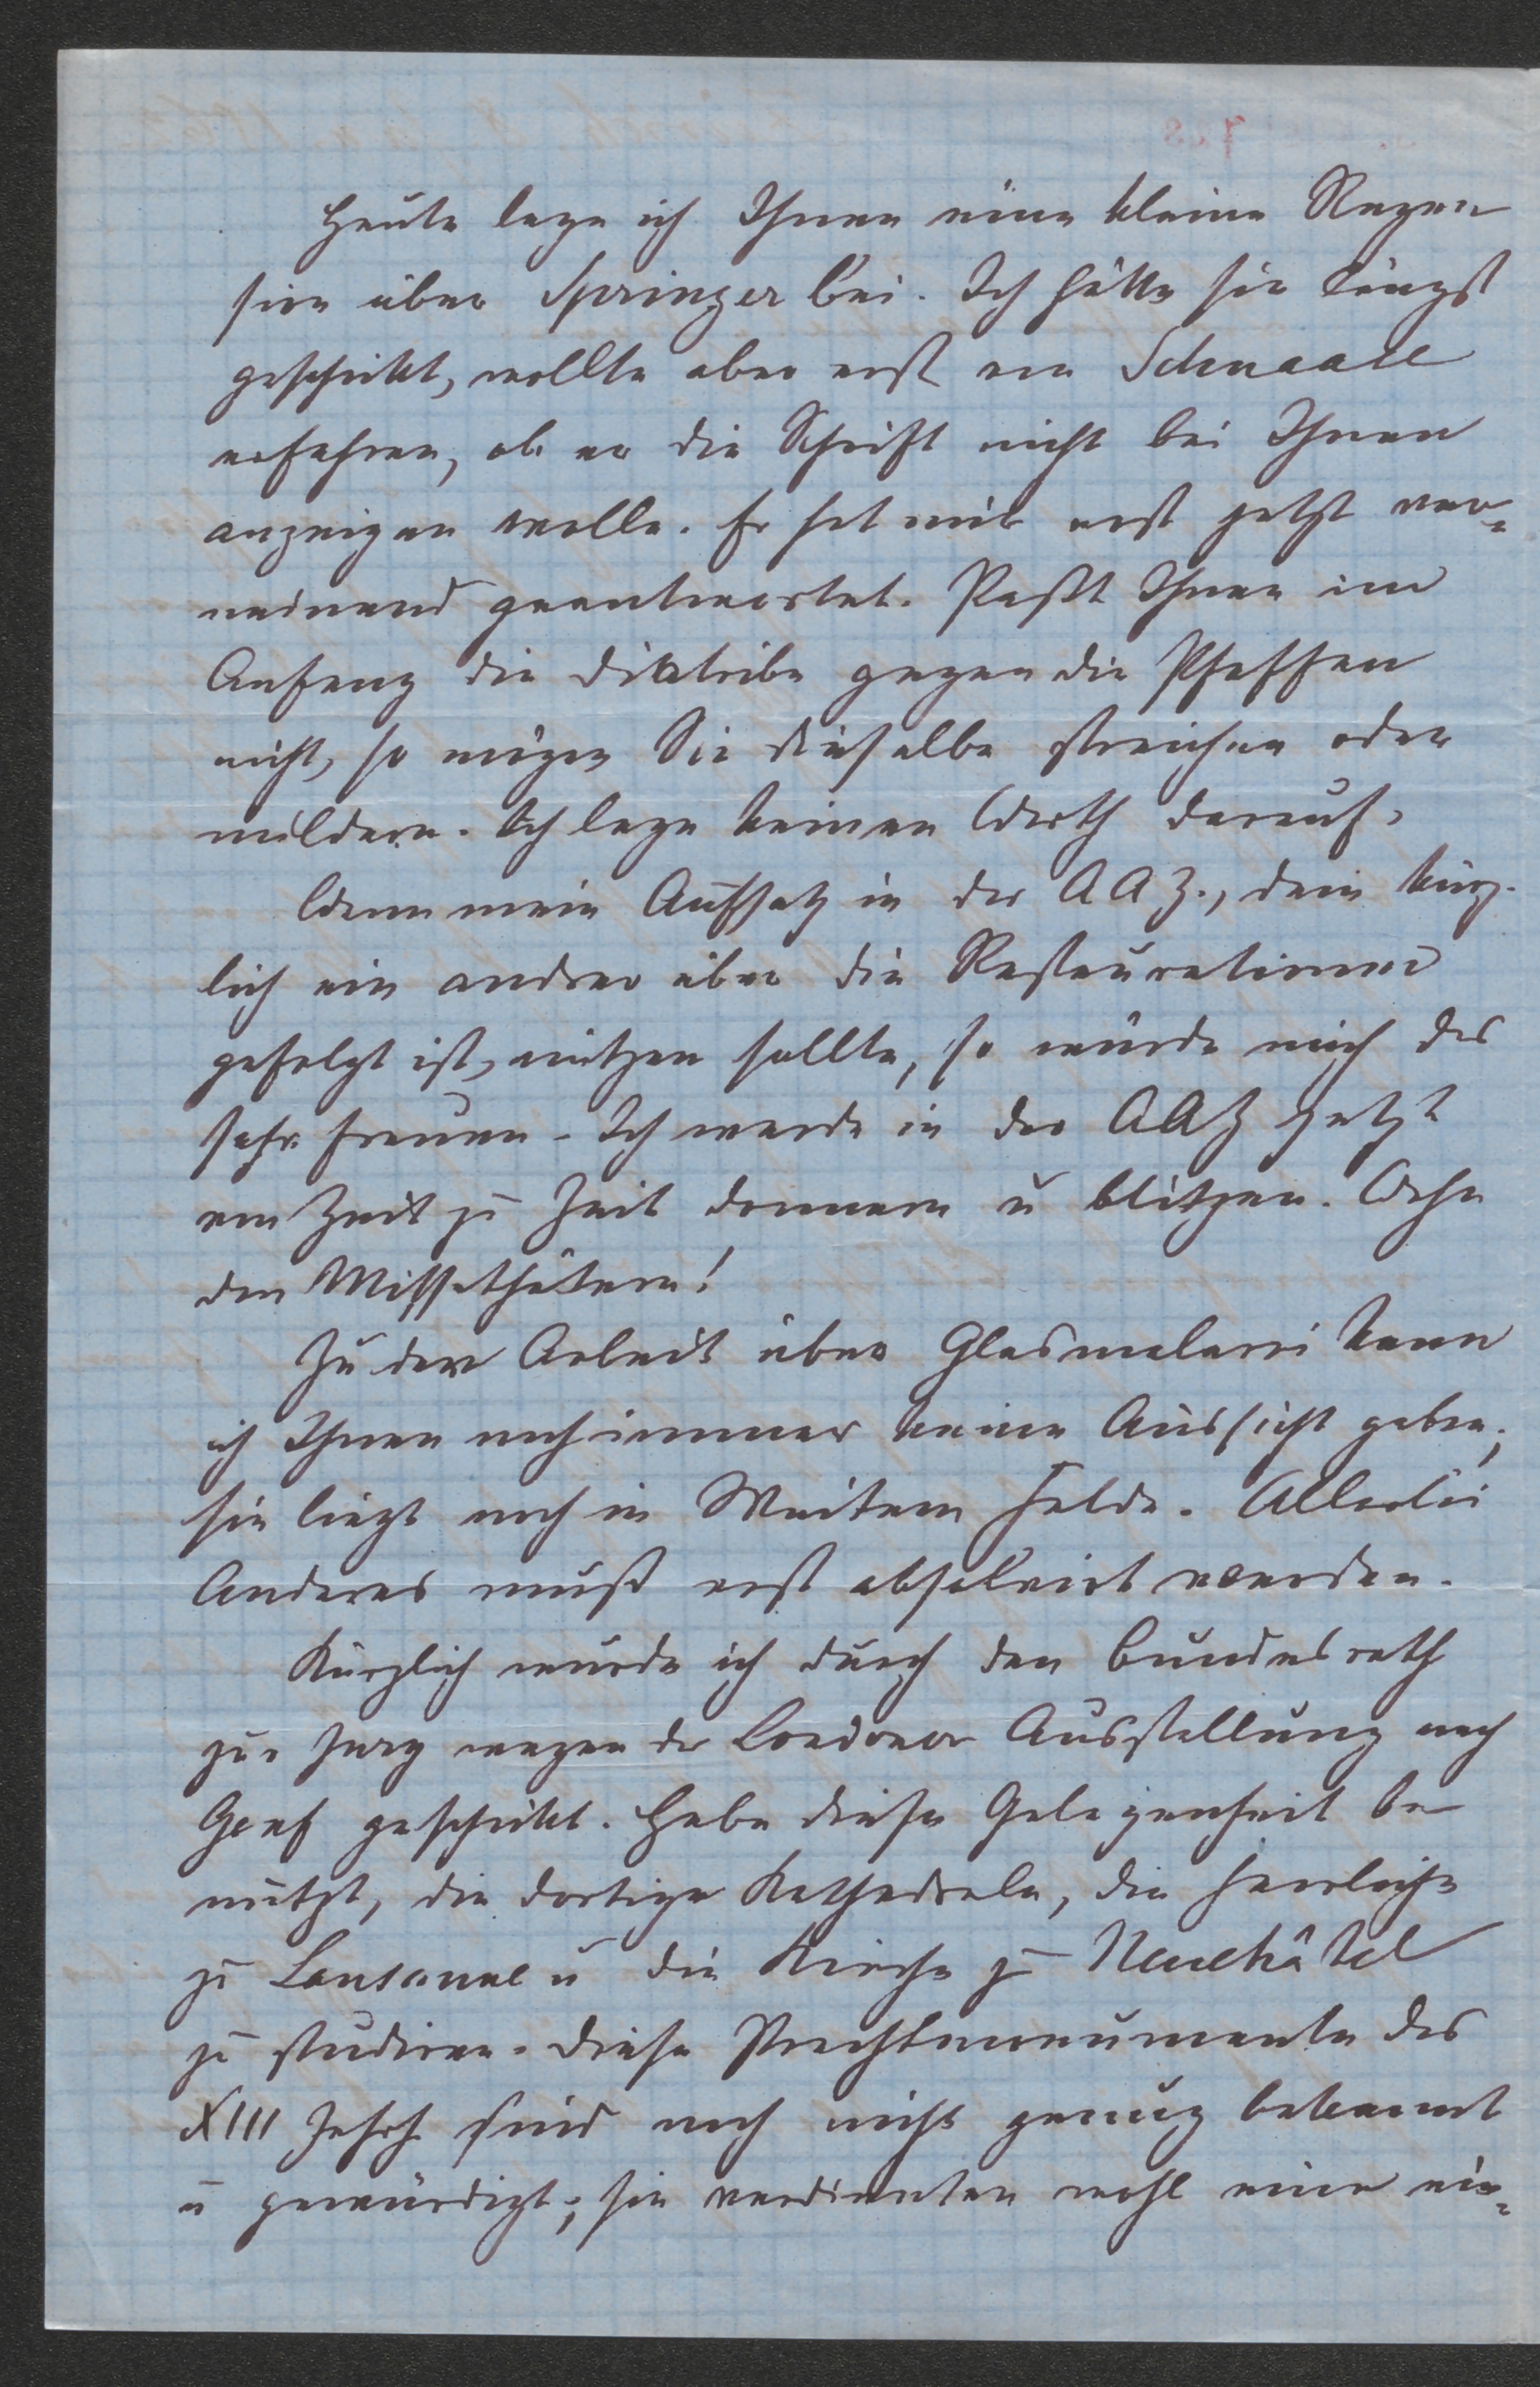 Heute lege ich Ihnen eine kleine Rezen
sion über Springer bei. Ich hätte sie längst
geschickt, wollte aber erst von Schnaase
erfahren, ob er die Schrift nicht bei Ihnen
anzeigen wolle. Er hat mir erst jetzt ver-
neinend geantwortet. Paßt Ihnen im
Anfang die Diatribe gegen die Pfaffen
nicht, so mögen Sie dieselbe streichen oder
mildern. Ich lege keinen Werth darauf.
Wenn mein Aufsatz in der AAZ., dem kürz-
lich ein andrer über die Restaurationen
gefolgt ist, nützen sollte, so würde mich das
sehr freuen. Ich werde in der AAZ jetzt
von Zeit zu Zeit donnern u blitzen. Wehe
den Missethätern!
Zu der Arbeit über Glasmalerei kann
ich Ihnen noch immer keine Aussicht geben;
sie liegt noch in Weitem Felde. Allerlei
Anderes muß erst absolvirt werden.
Kürzlich wurde ich durch den Bundesrath
zur Jury wegen der Londoner Ausstellung nach
Genf geschickt. Habe diese Gelegenheit be
nutzt, die dortige Kathedrale, die herrliche
zu Lausanne u die Kirche zu Neuchâtel
zu studiren. Diese Prachtmonumente des
XIII Jahrh sind noch nicht genug bekannt
u gewürdigt; sie verdienten wohl eine ein-